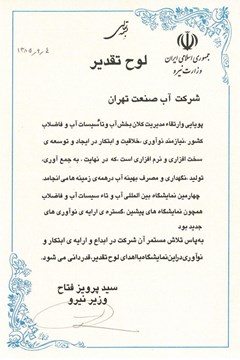 بسمه تعالی
۱۳۸۵
جمهوری اسلامی ایران
وزارت نیرو
لوح تقدیر
شرکت آب صنعت تهران
پویایی وارتقاء مدیریت کلان بخش آب و تأسیسات آب و فاضلاب
کشور ،نیازمند نوآوری ،خلاقیت و ابتکار در ایجاد و توسعه ی
سخت افزاری و نرم افزاری است، که در نهایت ، به جمع آوری،
تولید ،نگهداری و مصرف بهینه آب درهمه ی زمینه هامی انجامد
چهارمین نمایشگاه بین المللی آب و تاء سیسات آب و فاضلاب
همچون نمایشگاه های پیشین ،گستره ی ارایه ی نوآوری های
جدید بود
به پاس تلاش مستمر آن شرکت در ابداع و ارایه ی ابتکار و
نوآوری دراین نمایشگاه بااهدای لوح تقدیر، قدردانی می شود.
سید پرویز فتاح
وزیر نیرو